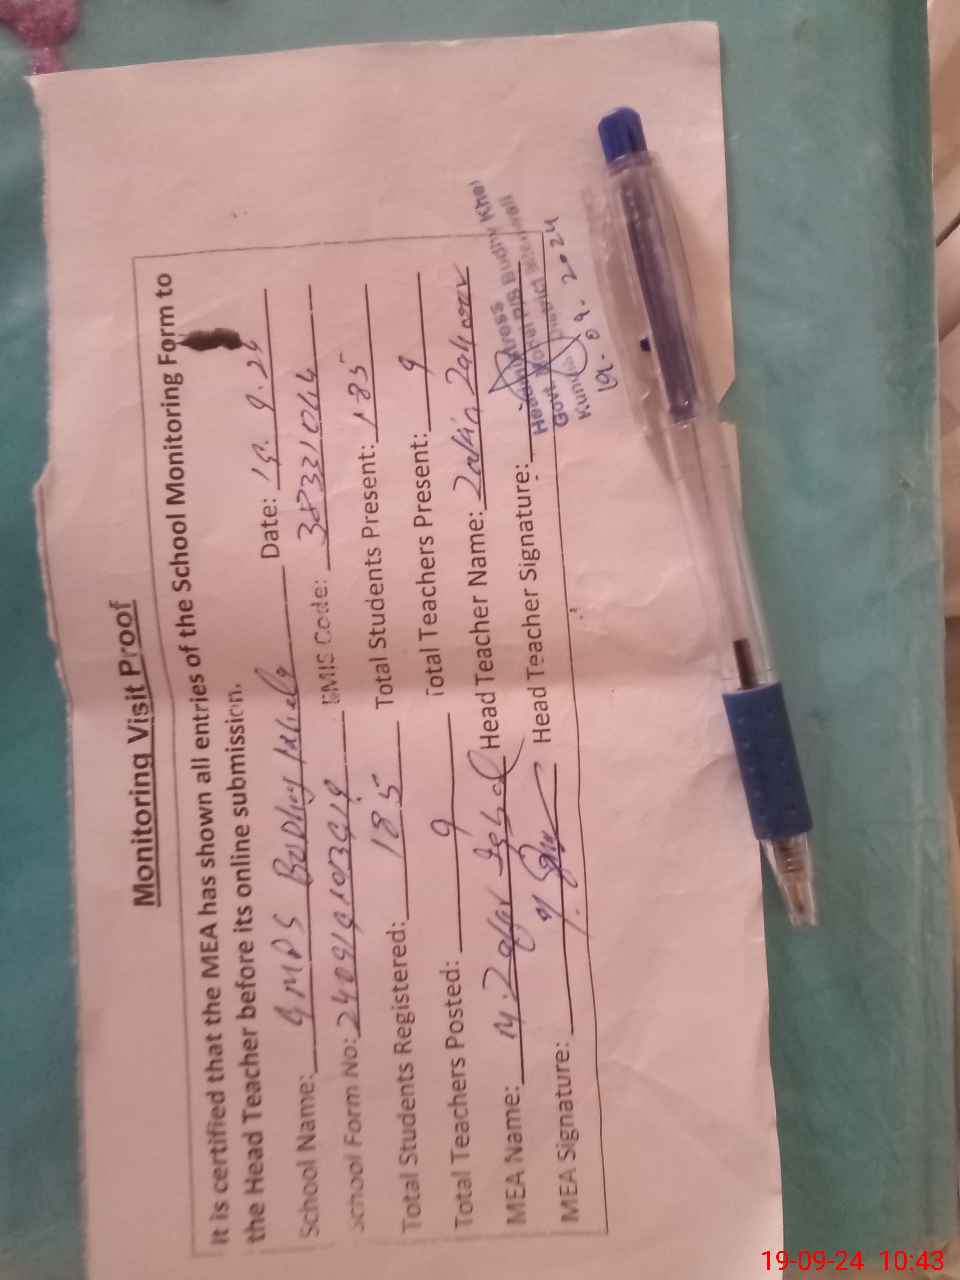 Monitoring Visit Proof
It is certified that the MEA has shown all entries of the School Monitoring Form to
the Head Teacher before its online submission.
School Name: GMPS Budhry Khel Date: 19.9.24
School Form No: EMIS Code: 38331044
Total Students Registered: 185 Total Students Present: 185
Total Teachers Posted: 9 Total Teachers Present: 9
MEA Name: M. Zaffar Iqbal Head Teacher Name:
MEA Signature: Head Teacher Signature:
Headmistress
Govt. P/S Budhry Khel
District
19.09.2024
19-09-24 10:43